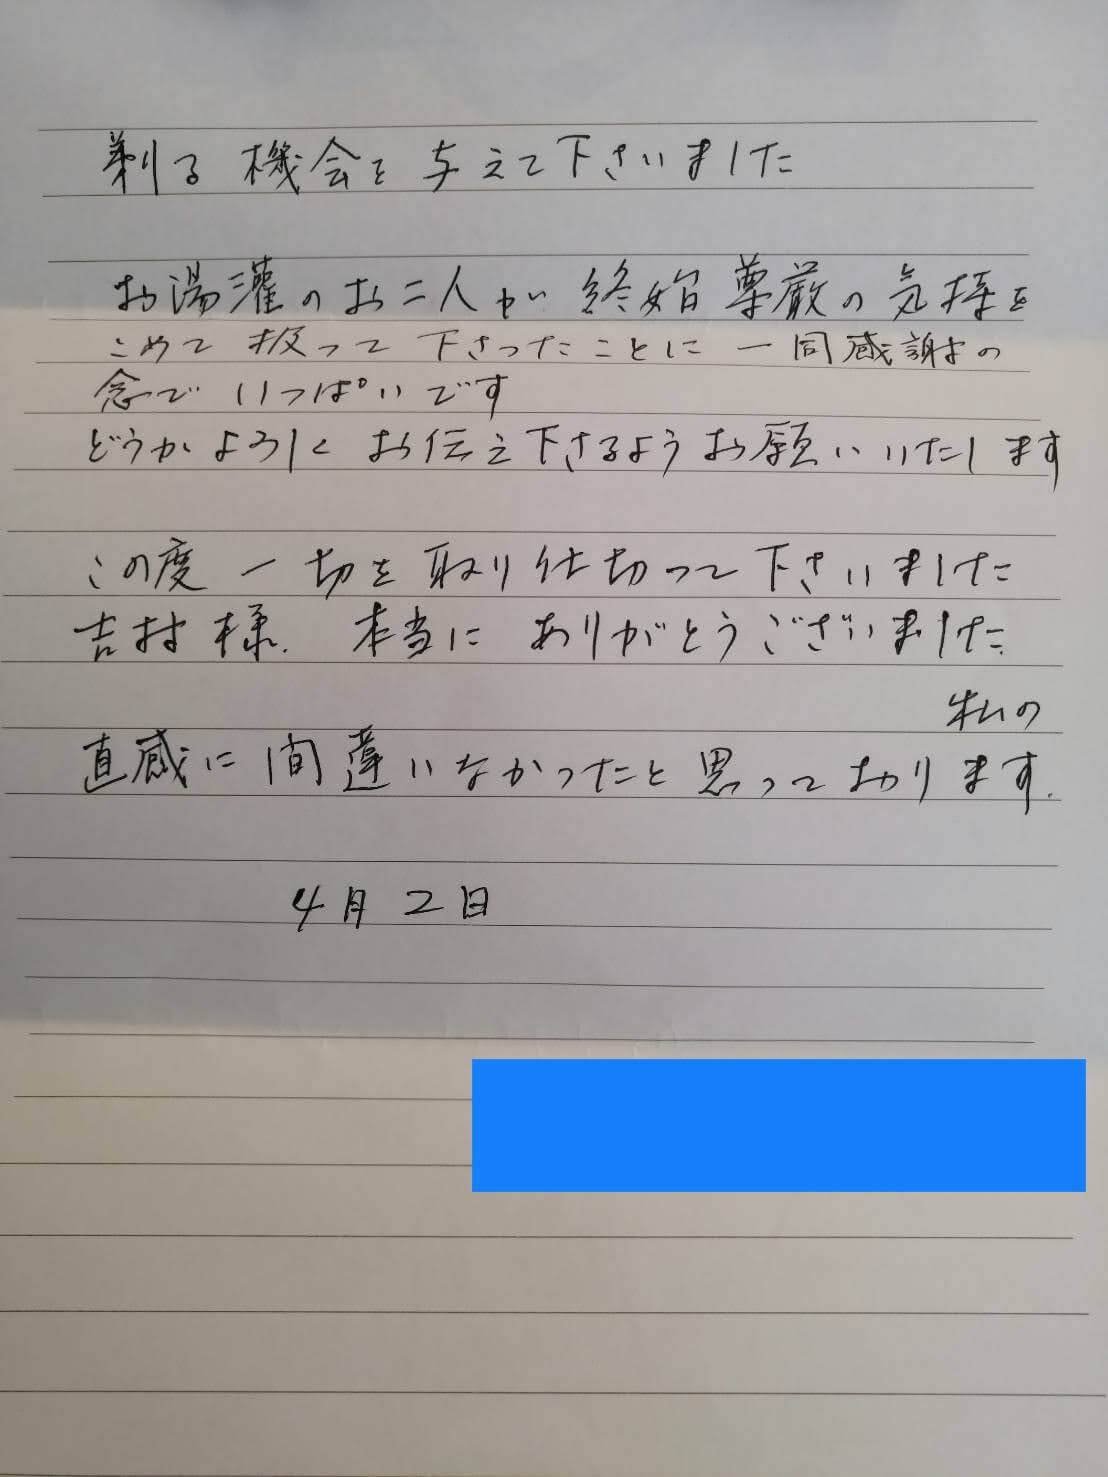 剃る機会を与えて下さいました
お湯灌のお二人が終始尊厳の気持を
こめて扱って下さったことに一同感謝の
念でいっぱいです
どうかよろしくお伝え下さるようお願いいたします
この度一切を取り仕切って下さいました
吉村様.本当にありがとうございました.
私の
直感に間違いなかったと思っております.
4月2日